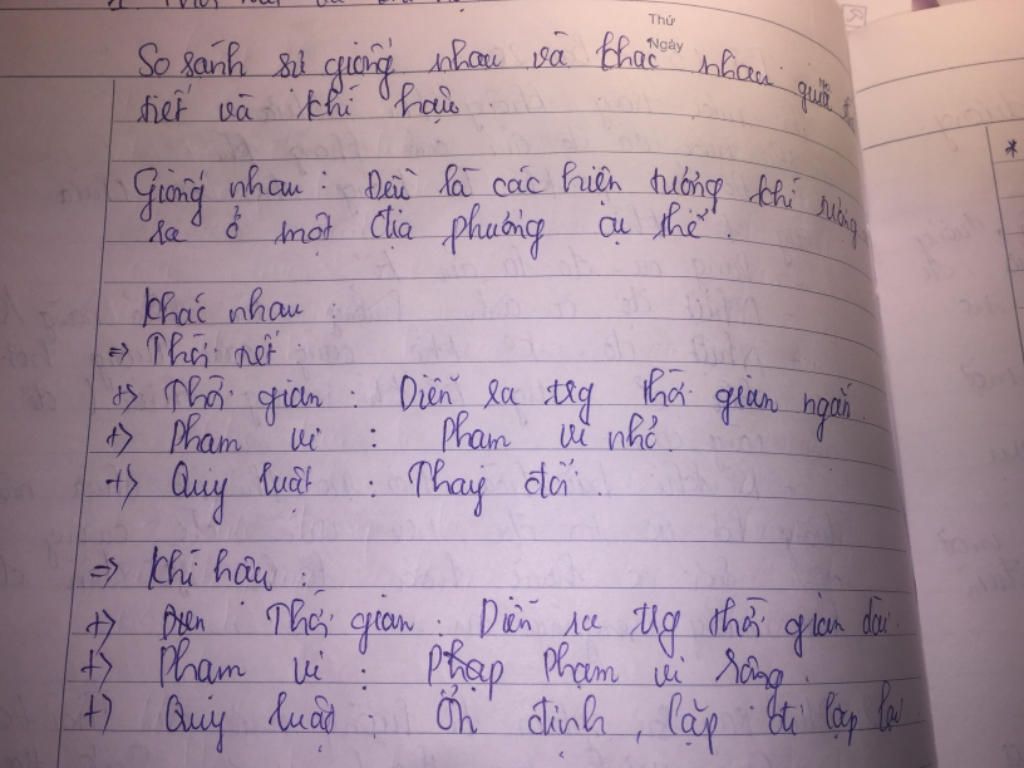 Thứ
Ngày
So sánh sự giống nhau và khác nhau giữa
tiết và khí hậu
Giống nhau : Đều là các hiện tượng khí tượng
ra ở một địa phương cụ thể.
Khác nhau :
=> Thời tiết :
+> Thời gian : Diễn ra trg thời gian ngắn.
+> Phạm vi : Phạm vi nhỏ.
+> Quy luật : Thay đổi.
=> Khí hậu :
+> Thời gian : Diễn ra trg thời gian dài.
+> Phạm vi : Phạp Phạm vi rộng.
+> Quy luật : Ổn định, lặp đi lặp lại
*